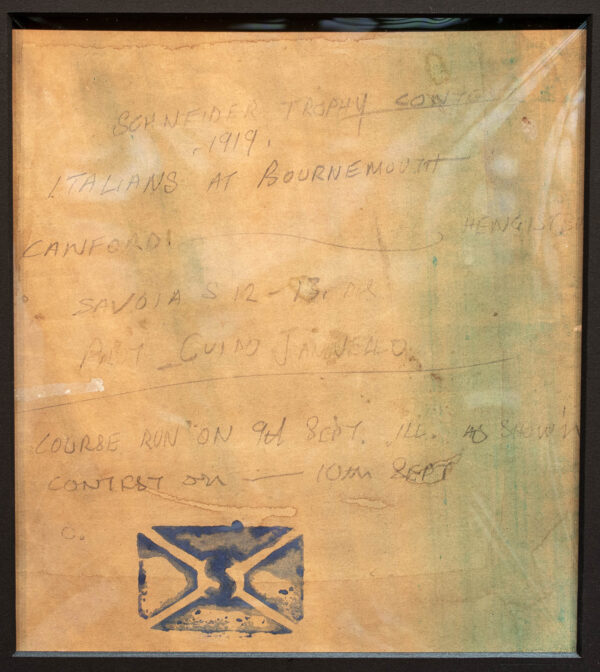 SCHNEIDER TROPHY CONTEST
1919.
ITALIANS AT BOURNEMOUTH
HENGISTB
CANFORD
SAVOIA S 12 - 13.
PILOT GUIDO JANNELLO
COURSE RUN ON 9th SEPT. ILL. AS SHOWN
CONTEST ON — 10th SEPT
S